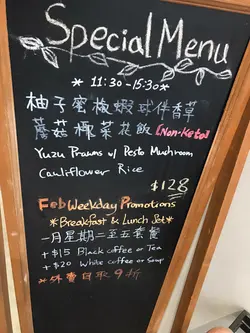 Special Menu
* 11:30 - 15:30 *
柚子蜜桃蝦球伴香草
蘑菇椰菜花飯 [Non-Keto]
Yuzu Prawns w/ Pesto Muchroom
Cauliflower Rice
$128
Feb Weekday Promotions
*Breakfast & Lunch Set*
一月星期二至五套餐
+ $15 Black coffee or Tea
+ $20 White coffee or Soup
*外賣自取9折*